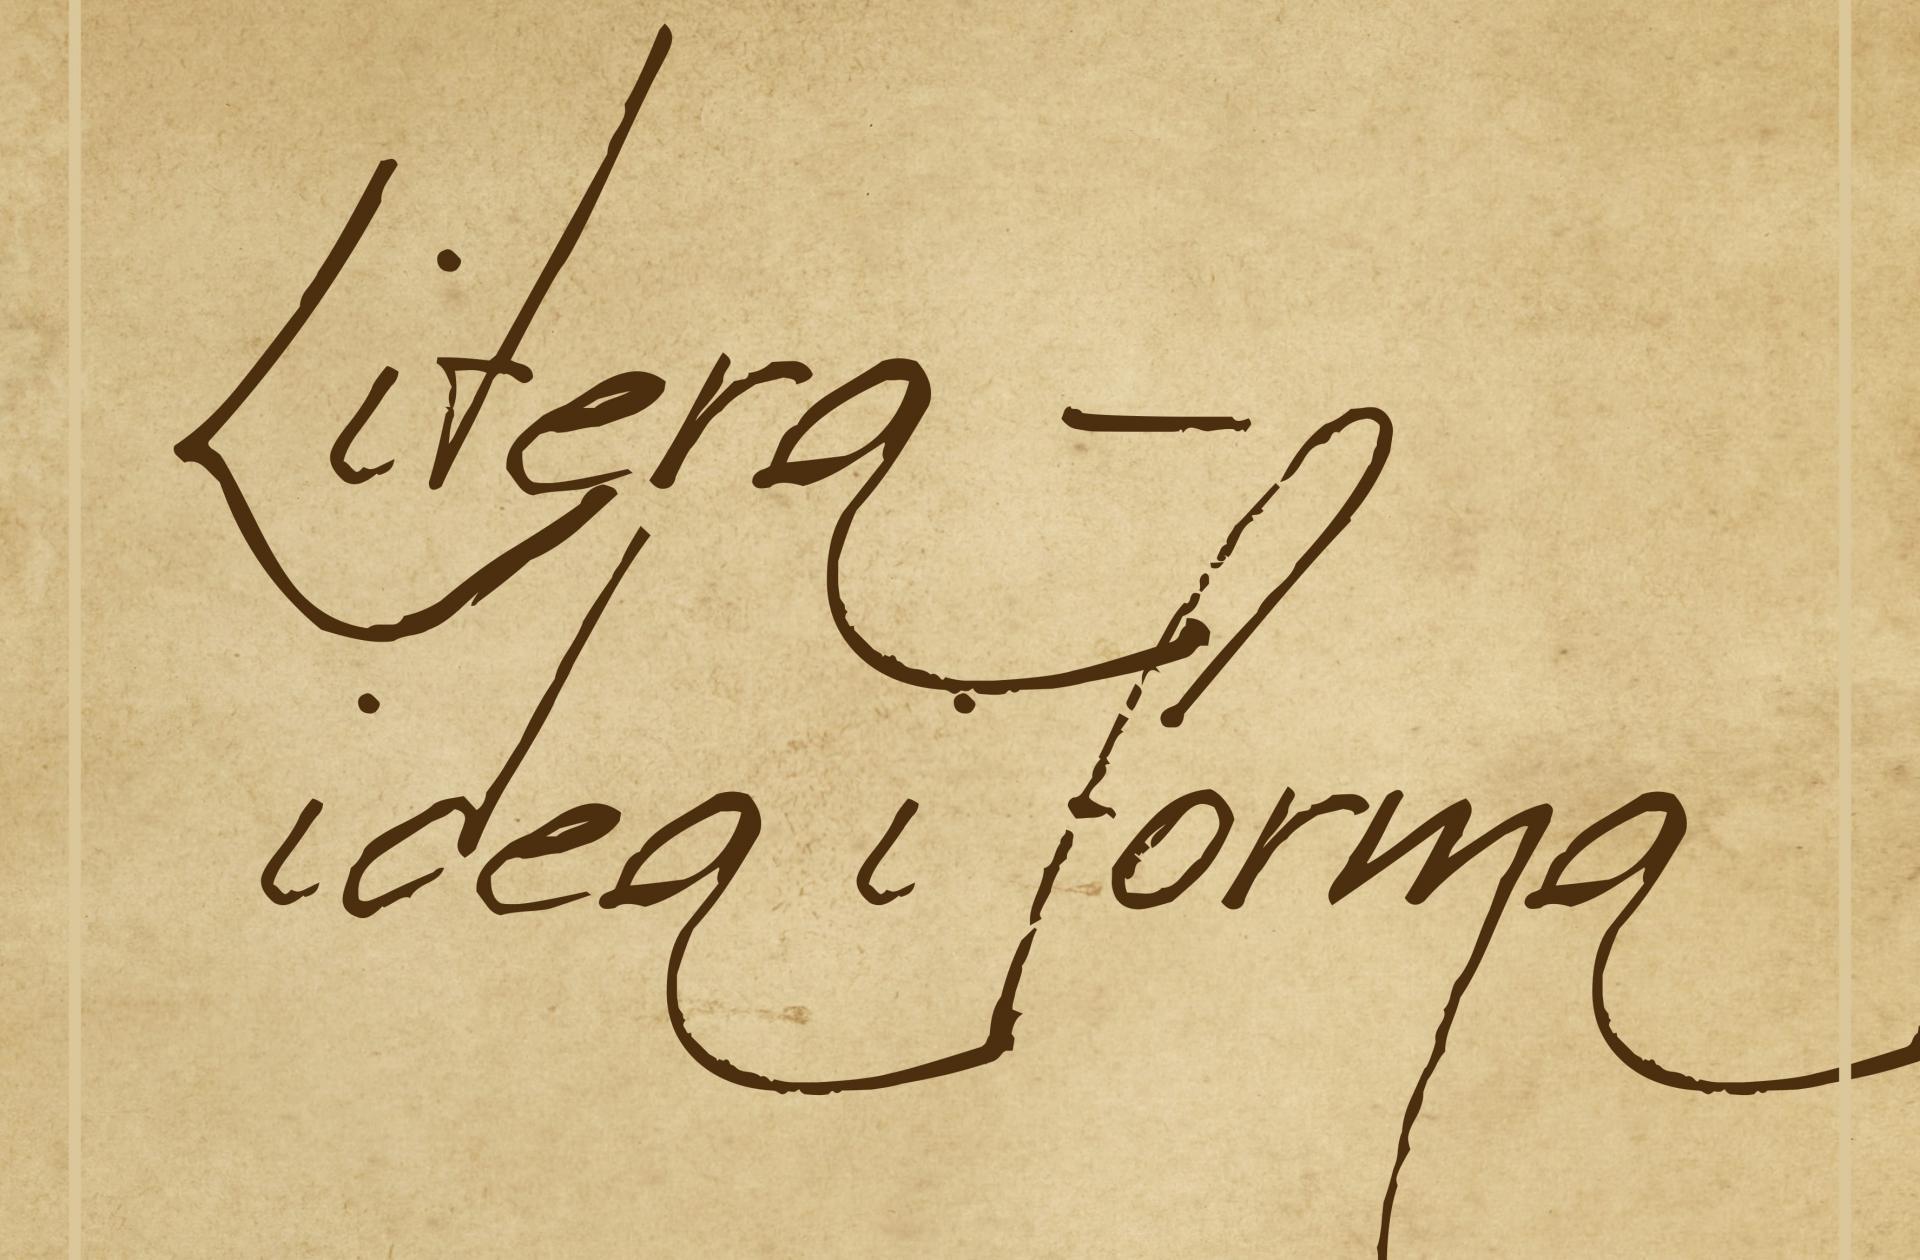 Litera –
idea i forma